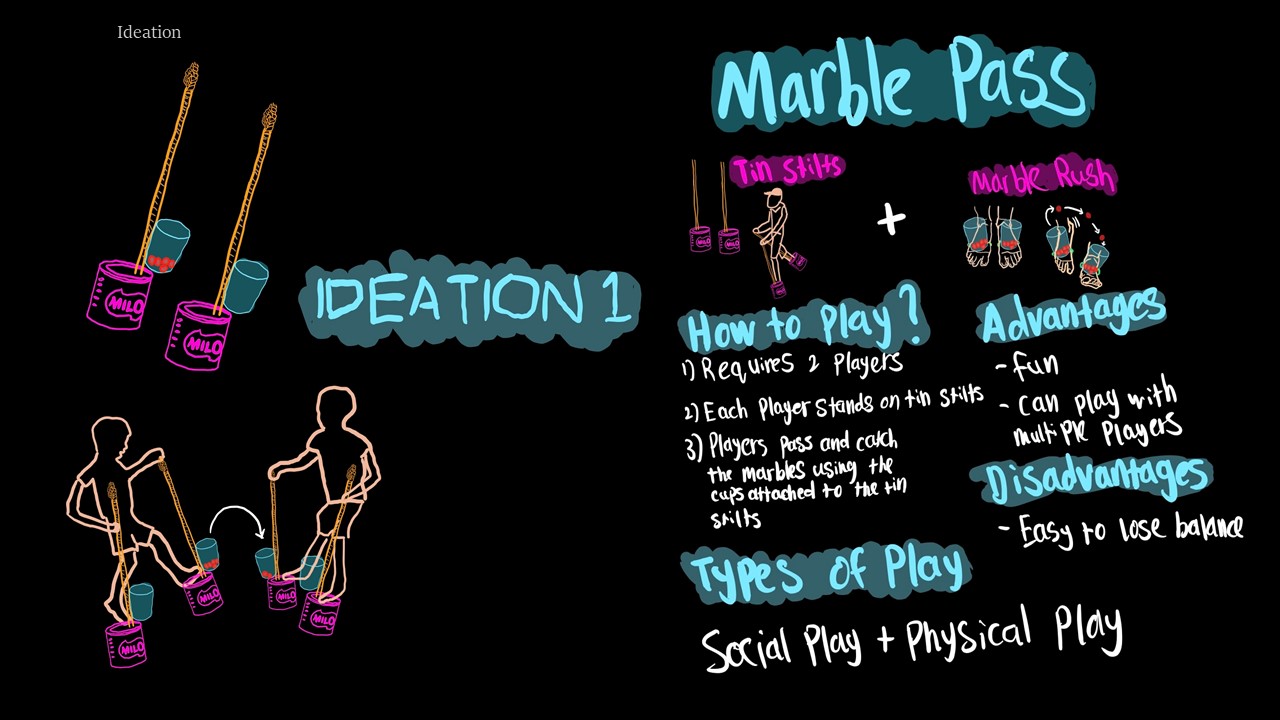 Ideation
MILO
MILO
IDEATION 1
MILO
MILO
MILO
MILO
Marble Pass
Tin Stilts
MILO
MILO
+
Marble Rush
How to Play?
1) Requires 2 Players
2) Each Player stands on tin stilts
3) Players pass and catch
the marbles using the
cups attached to the tin
stilts
Advantages
- fun
- can play with
multiple players
Disadvantages
- Easy to lose balance
Types of Play
Social Play + Physical Play